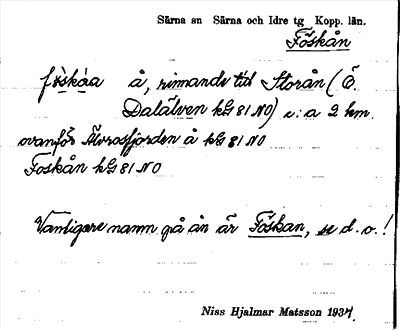 Särna sn Särna och Idre tg Kopp. län.
Föskån
föskåa å, rinnande till Storån (Ö.
Dalälven kG 81 NO) c:a 2 km.
ovanför Älvrosfjorden å kG 81 NO
Foskån kG 81 NO
Vanligare namn på ån är Föskan, se d.o.!
Niss Hjalmar Matsson 1934.